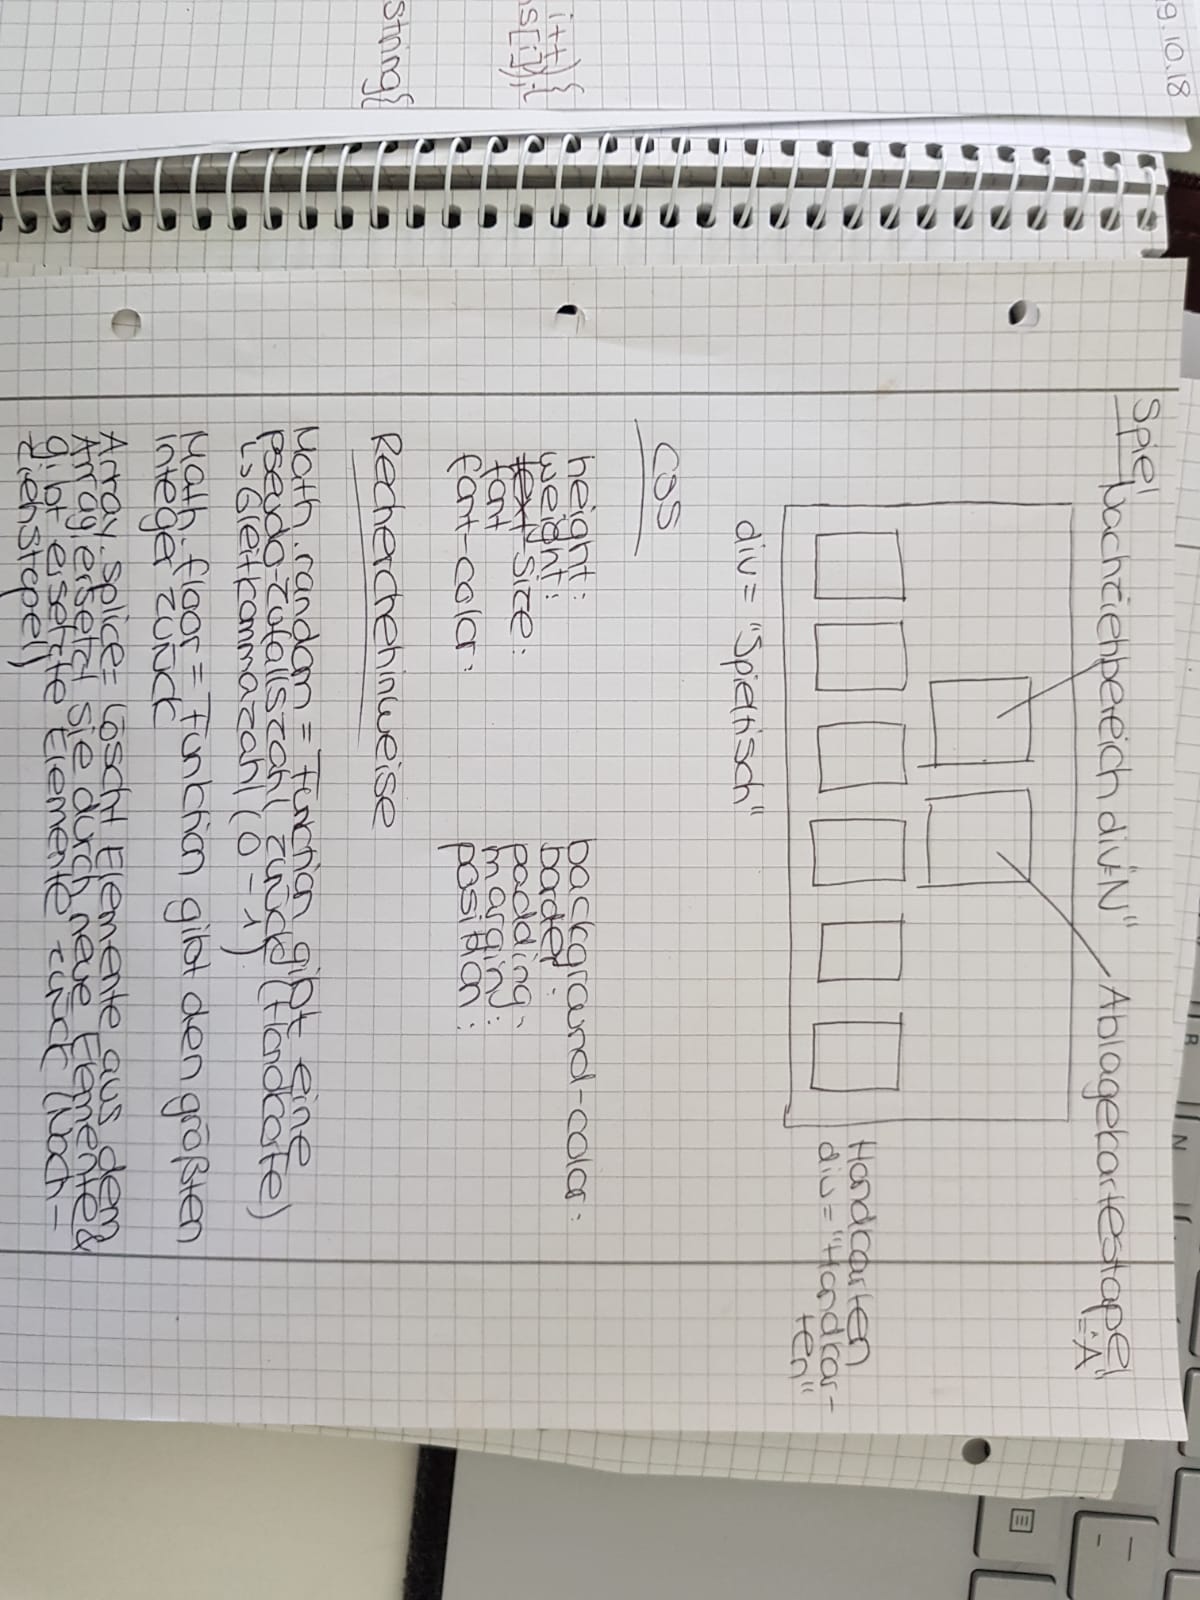 9.10.18
i++){
s[i]);{
String{
Spiel
Nachziehbereich div="N"
Ablagekartestapel
="A"
Handkarten
div="Handkar-
ten"
div="Spieltisch"
CSS
height:
weight:
font size:
font-color:
background-color:
border:
padding:
marging:
position:
Recherchehinweise
Math.random = Function gibt eine
pseudo-zufallszahl zurück (Handkarte)
↳ Gleitkommazahl (0-1)
Math.floor = Funktion gibt den größten
Integer zurück
Array.splice= löscht Elemente aus dem
Array, ersetzt sie durch neue Elemente &
gibt ersetzte Elemente zurück (Nach-
ziehstapel)